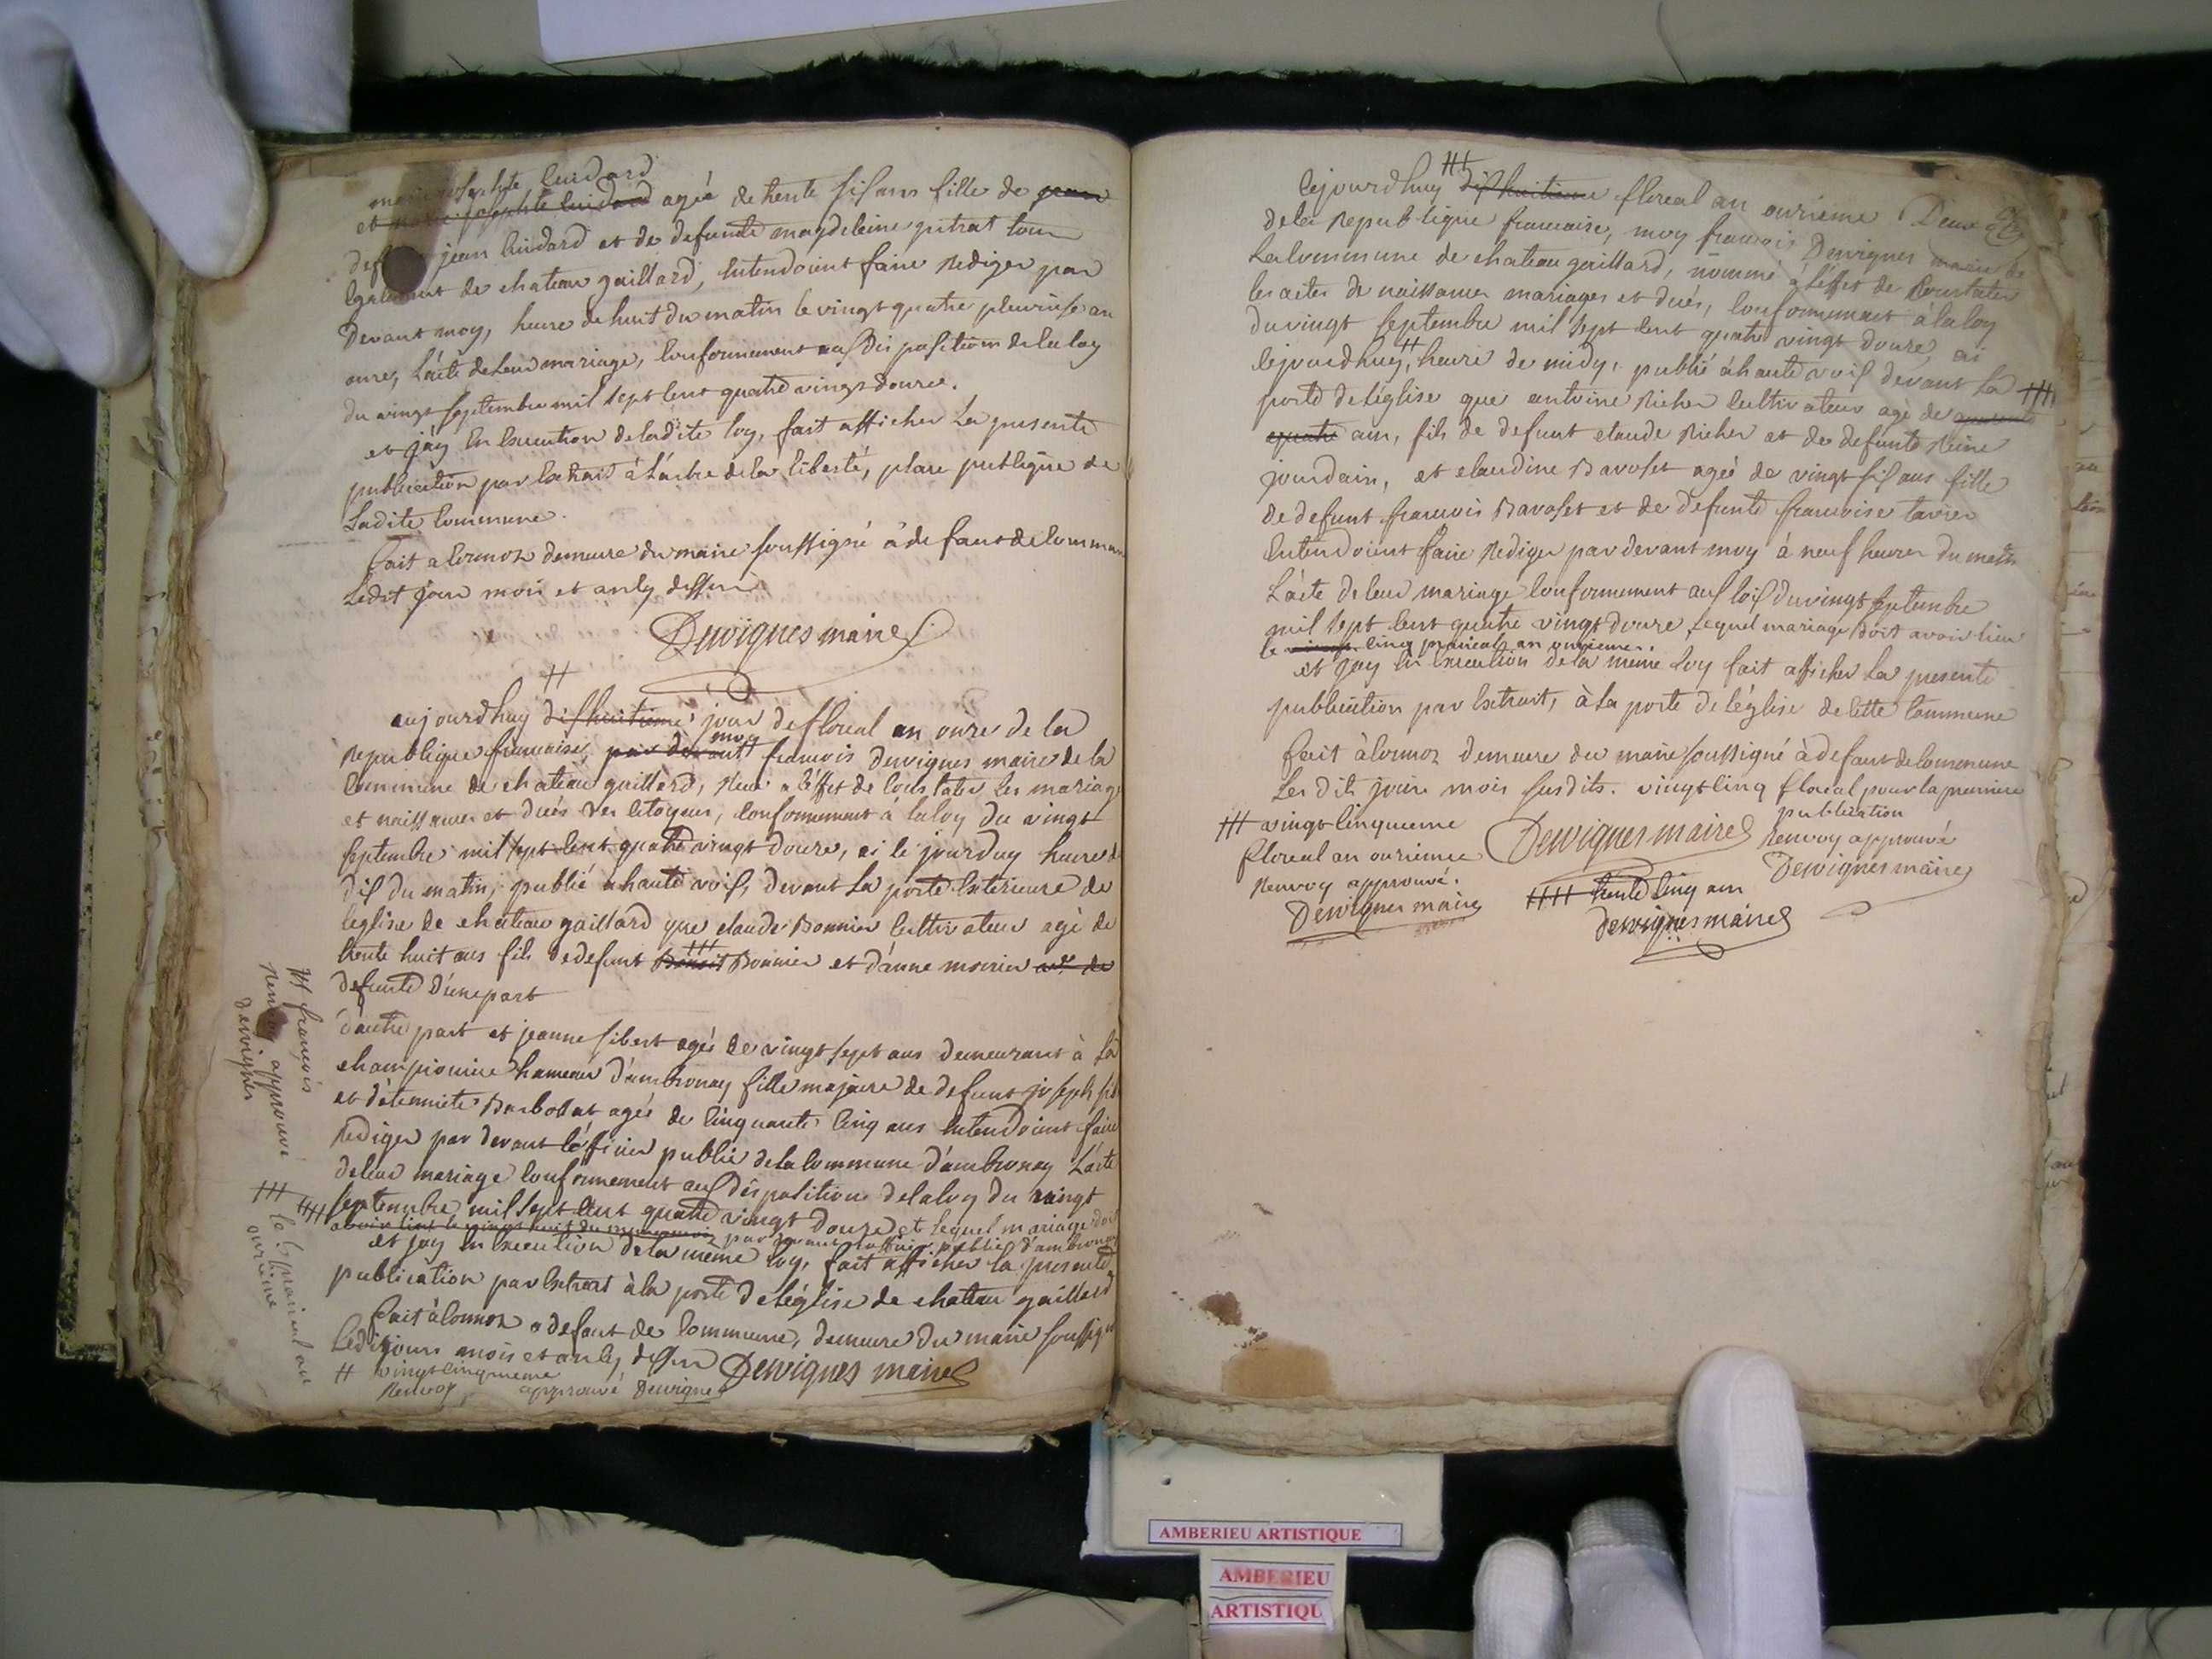 marie josephte cuidard
et marie josephte cuidard agée de trente six ans fille de jean
def jean cuidard et de defunte magdeleine gutrat tous
egalement de chateau gaillard, entendoient faire rediger par
devant moy, heure de huit du matin le vingt quatre pluviose an
onze, l'acte de leur mariage, conformement aux dispositions de la loy
du vingt septembre mil sept cent quatre vingt douze.
et j'ay en execution de ladite loy, fait afficher la presente
publication par extrait à l'arbre de la liberté, place publique de
ladite commune.
fait a cormoz demeure du maire soussigné à defaut de commun
ledit jour mois et an cy dessus
Dervignes maire
++
aujourdhuy dixhuitieme jour de floreal an onze de la
moy
republique francaise, par devant francois dervignes maire de la
commune de chateau gaillard, reue a l'effet de constater les mariage
et naissances et dués des citoyens, conformement à la loy du vingt
septembre mil sept cent quatre vingt douze, ai le jourduy heure de
dix du matin, publié a haute voix, devant la porte exterieure de
l'eglise de chateau gaillard que claude Bonnier cultivateur agé de
+++
trente huit ans fils de defunt Benoit Bonnier et d'anne morier
defunte d'une part
d'autre part et jeanne sibert agée de vingt sept ans demeurant à la
championiere hameau d'ambronay fille majeure de defunt joseph sib
et d'etiennete Barbollat agée de cinquante cinq ans entendoient faire
rediger par devant l'officier public de la commune d'ambronay l'acte
de leur mariage conformement aux disposition de la loy du vingt
septembre mil sept cent quatre vingt douze et lequel mariage doit
++++ avoir lieu le vingt huit du par devant l'officier public d'ambronay
et j'ay en execution de la meme loy, fait afficher la presente
publication par extrait à la porte de l'église de chateau gaillard
fait à cormoz a defaut de commune, demeure du maire soussigné
ledit jour mois et an cy dessus Dervignes maire
++ vingt cinquieme
renvoy, approuvé Dervignes
+++ francois
renvoy approuvé
dervignes
++++ le 5 prairial an
onzieme
+++
cejourdhuy dixhuitieme floreal an onzieme Deux
de la republique francaise, moy francois Dervignes maire de
la commune de chateau gaillard, nommé à l'effet de constater
les actes de naissances mariages et dués, conformement à la loy
du vingt septembre mil sept cent quatre vingt douze, ai
cejourdhuy, ++ heure de midy, publié à haute voix devant la
porte de l'église que antoine Richer cultivateur agé de quarante ++++
quatre ans, fils de defunt claude Richer et de defunte Reine
jourdain, et claudine Bavoset agée de vingt six ans fille
de defunt francois Bavoset et de defunte francoise tavier
entendoient faire rediger par devant moy à neuf heures du matin
l'acte de leur mariage conformement aux loix du vingt septembre
mil sept cent quatre vingt douze, lequel mariage doit avoir lieu
le vingt cinq prairial an onzieme.
et j'ay en execution de la meme loy fait afficher la presente
publication par extrait, à la porte de l'église de cette commune
fait à cormoz demeure du maire soussigné à defaut de commune
les dits jours mois susdits. vingt cinq floreal pour la premiere
publication
+++ vingt cinquieme
floreal an onzieme
renvoy approuvé.
Dervignes maire
Dervignes maire
renvoy approuvé
Dervignes maire
++++ trente cinq ans
dervignes maire
AMBERIEU ARTISTIQUE
AMBERIEU
ARTISTIQU